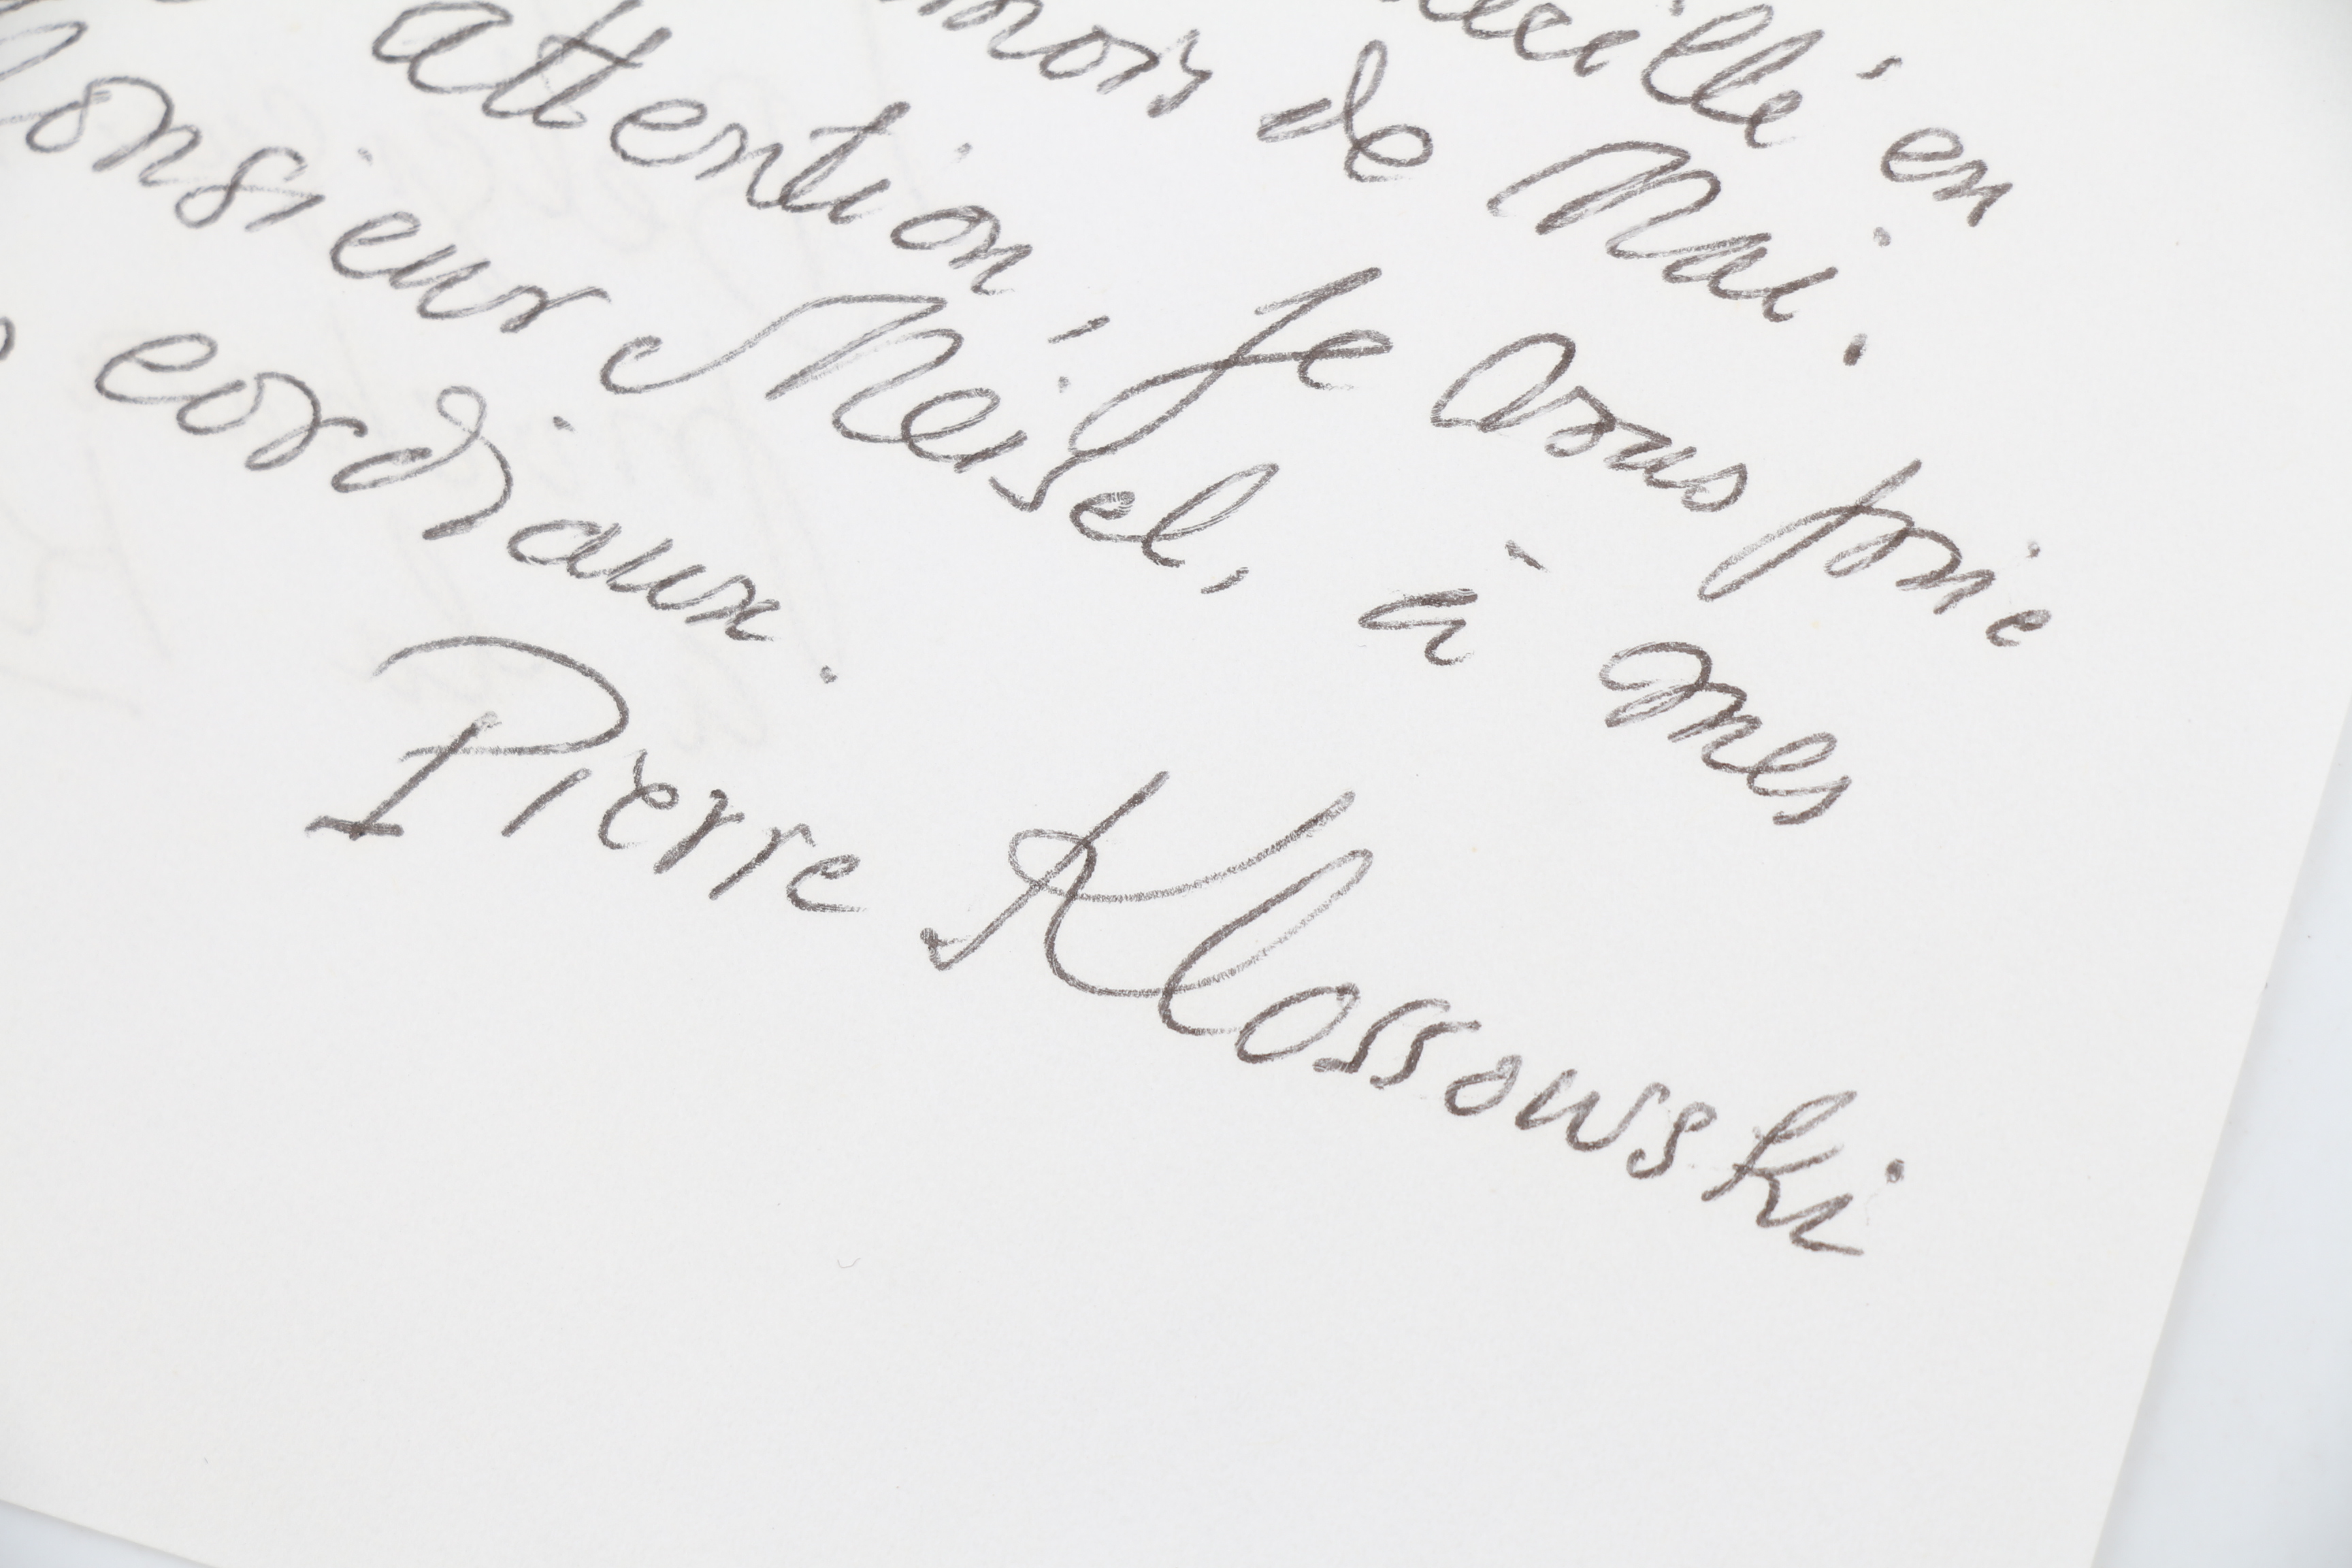 en
mois de Mai.
attention, Je vous prie
Monsieur Meisel, à mes
cordiaux.
Pierre Klossowski